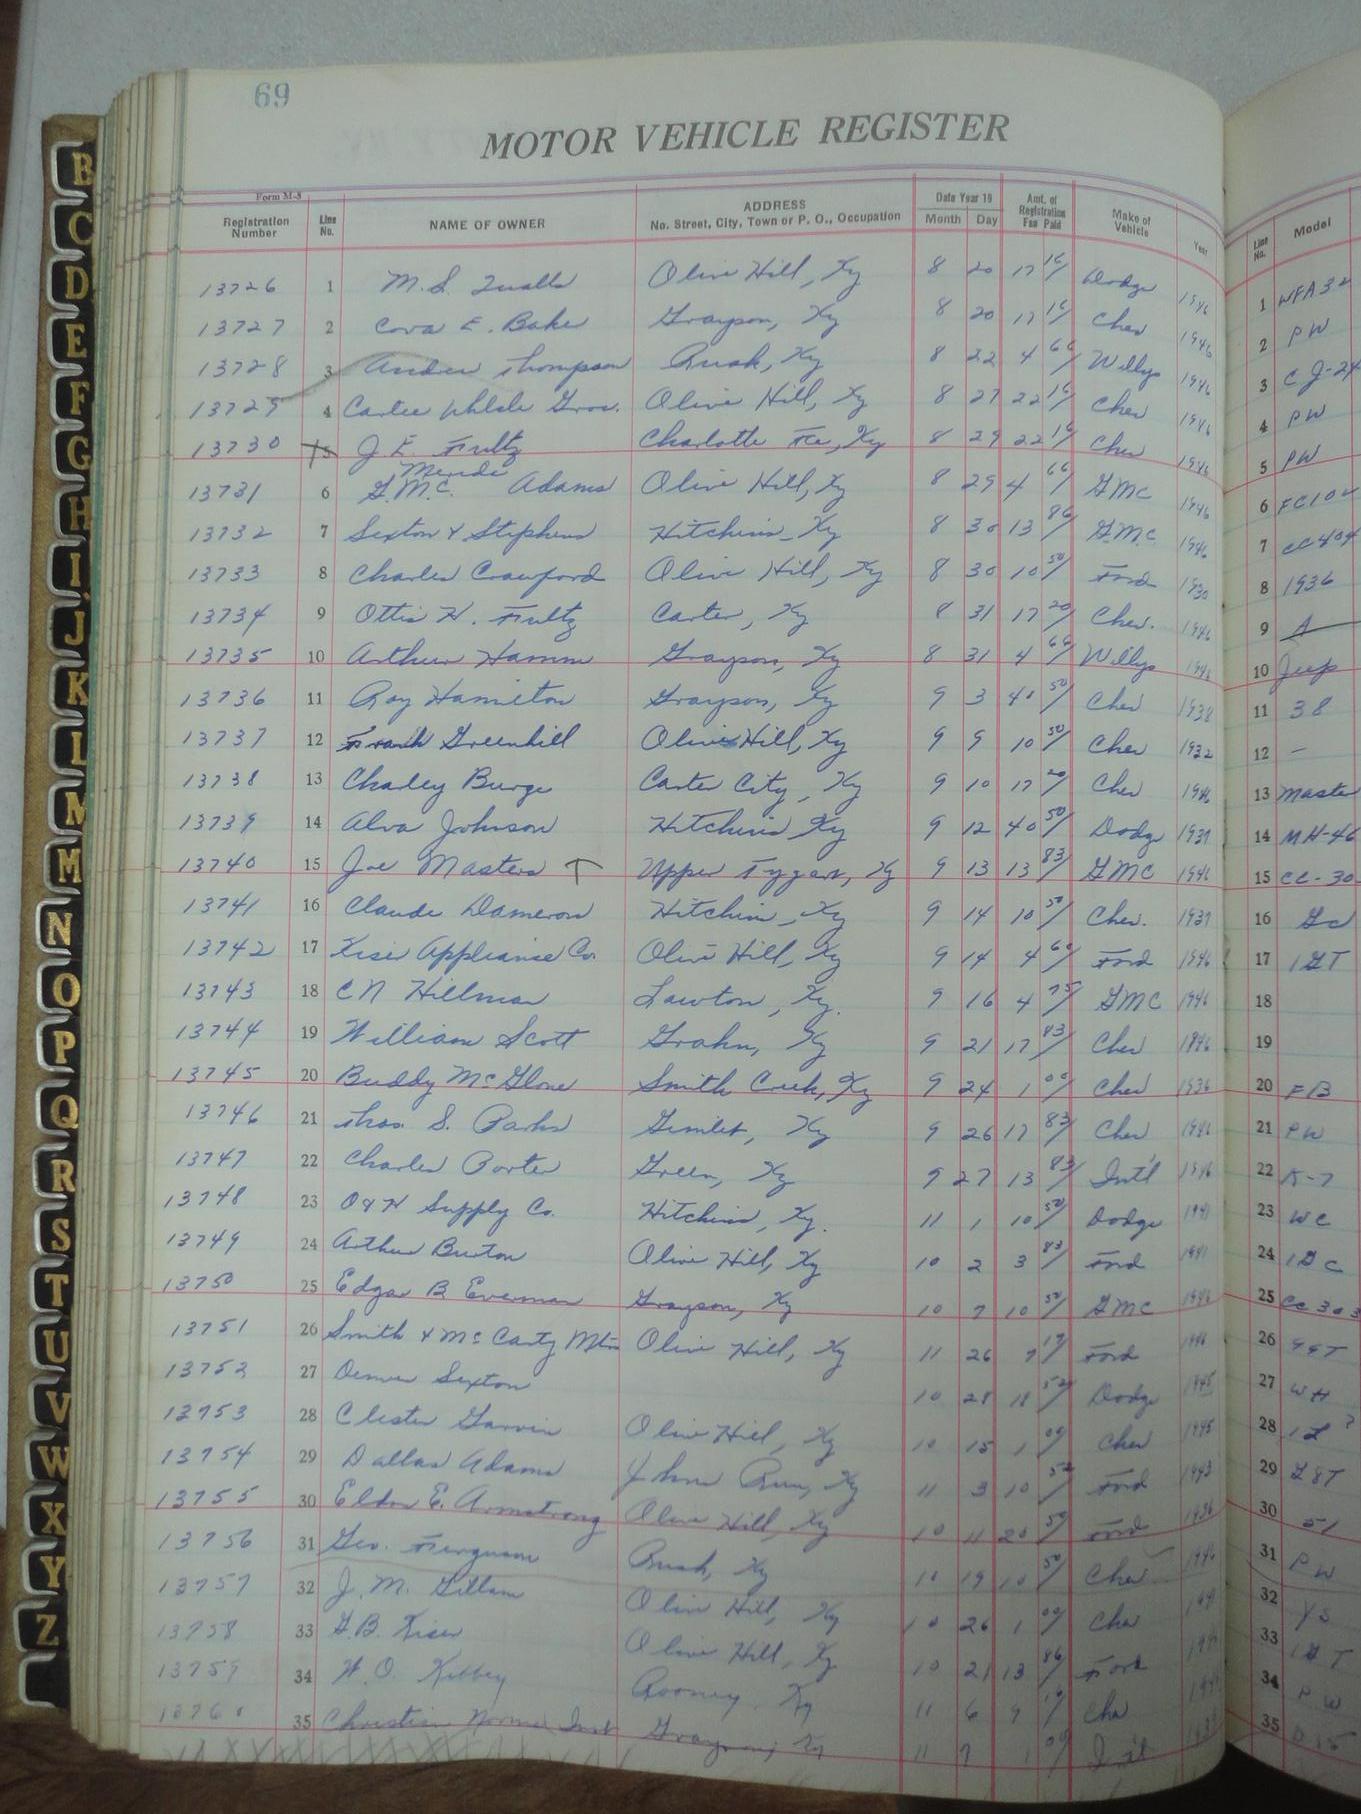 69
MOTOR VEHICLE REGISTER
Form M-8
Registration Number Line No. NAME OF OWNER ADDRESS No. Street, City, Town or P. O., Occupation Date Year 19 Month Day Amt. of Registration Fee Paid Make of Vehicle Year Line No. Model
13726 1 M. S. Olive Hill, Ky 8 20 17 16/ Dodge 1946 1 WFA32
13727 2 Cora E. Baker Grayson, Ky 8 20 17 16/ Chev 1946 2 PW
13728 3 Thompson Rush, Ky 8 22 4 66/ Willys 1946 3 CJ-24
13729 4 Carter Whlsle Groc. Olive Hill, Ky 8 27 22 16/ Chev 1946 4 PW
13730 5 J. E. Fultz Charlotte Fce, Ky 8 29 22 16/ Chev 1946 5 PW
13731 6 G.M.C. Adams Olive Hill, Ky 8 29 4 66/ GMC 1946 6 FC102
13732 7 Sexton & Stephens Hitchins, Ky 8 30 13 86/ G.M.C. 1946 7 CC404
13733 8 Charles Crawford Olive Hill, Ky 8 30 10 50/ Ford 1930 8 1936
13734 9 Ottis H. Fultz Carter, Ky 8 31 17 20/ Chev. 1946 9 A
13735 10 Arthur Hamm Grayson, Ky 8 31 4 66/ Willys 1946 10 Jeep
13736 11 Roy Hamilton Grayson, Ky 9 3 40 50/ Chev 1938 11 38
13737 12 Frank Greenhill Olive Hill, Ky 9 9 10 50/ Chev 1932 12 –
13738 13 Charley Burge Carter City, Ky 9 10 17 20/ Chev 1946 13 Master
13739 14 Alva Johnson Hitchins, Ky 9 12 40 50/ Dodge 1937 14 MH-46
13740 15 Joe Masters Upper Tygart, Ky 9 13 13 83/ GMC 1946 15 CC-30
13741 16 Claude Dameron Hitchins, Ky 9 14 10 50/ Chev. 1937 16 GC
13742 17 Kiser Appliance Co. Olive Hill, Ky 9 14 4 60/ Ford 1946 17 1GT
13743 18 C N Hillman Lawton, Ky. 9 16 4 75/ GMC 1946 18
13744 19 William Scott Grahn, Ky 9 21 17 83/ Chev 1946 19
13745 20 Buddy McGlone Smith Creek, Ky 9 24 1 00/ Chev 1936 20 FB
13746 21 Thos. S. Parks Gimlet, Ky 9 26 17 83/ Chev 1946 21 PW
13747 22 Charles Porter Green, Ky 9 27 13 83/ Int'l 1946 22 K-7
13748 23 O & H Supply Co. Hitchins, Ky. 11 1 10 50/ Dodge 1941 23 WC
13749 24 Arthur Burton Olive Hill, Ky 10 2 3 83/ Ford 1941 24 1GC
13750 25 Edgar B Everman Grayson, Ky 10 7 10 50/ GMC 1946 25 CC303
13751 26 Smith & McCarty Mtrs Olive Hill, Ky 11 26 7 17/ Ford 1946 26 99T
13752 27 Denver Sexton 10 28 18 52/ Dodge 1945 27 WH
13753 28 Clester Garvin Olive Hill, Ky 10 15 1 00/ Chev 1945 28
13754 29 Dallas Adams Johns Run, Ky 11 3 10 52 Ford 1943 29 G8T
13755 30 Eldon E. Armstrong Olive Hill, Ky 10 11 20 50/ Ford 1936 30 51
13756 31 Geo. Ferguson Rush, Ky 10 19 10 50/ Chev 1946 31 PW
13757 32 J. M. Gillam Olive Hill, Ky 10 26 1 00/ Chev 32 YS
13758 33 G. B. Kiser Olive Hill, Ky 10 21 13 86/ Ford 33
13759 34 W. O. Kibbey Rooney, Ky 11 6 9 Chev 34 PW
13760 35 Christian Normal Inst Grayson, Ky 11 7 1 00/ Int'l 35 D15
B
C
D
E
F
G
H
I
J
K
L
M
M
N
O
P
Q
R
S
T
U
V
W
X
Y
Z